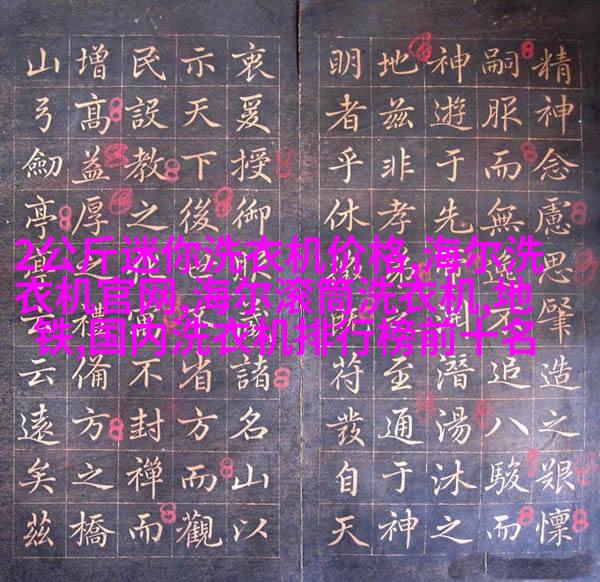 精神念慮思肇造之艱懍
嗣服而無逸追八駿而
神遊于先潛湯沐之
地茲非孝至通于神
明者乎休符發自天
衷爰授御諸名山以
示天下後世省方而觀
民設教之寓不封禪而
增高益厚禮備方之橋
山弓劍亭云遠矣茲
2公斤迷你洗衣机价格,海尔洗
衣机官网,海尔滚筒洗衣机,地
铁,国内洗衣机排行榜前十名